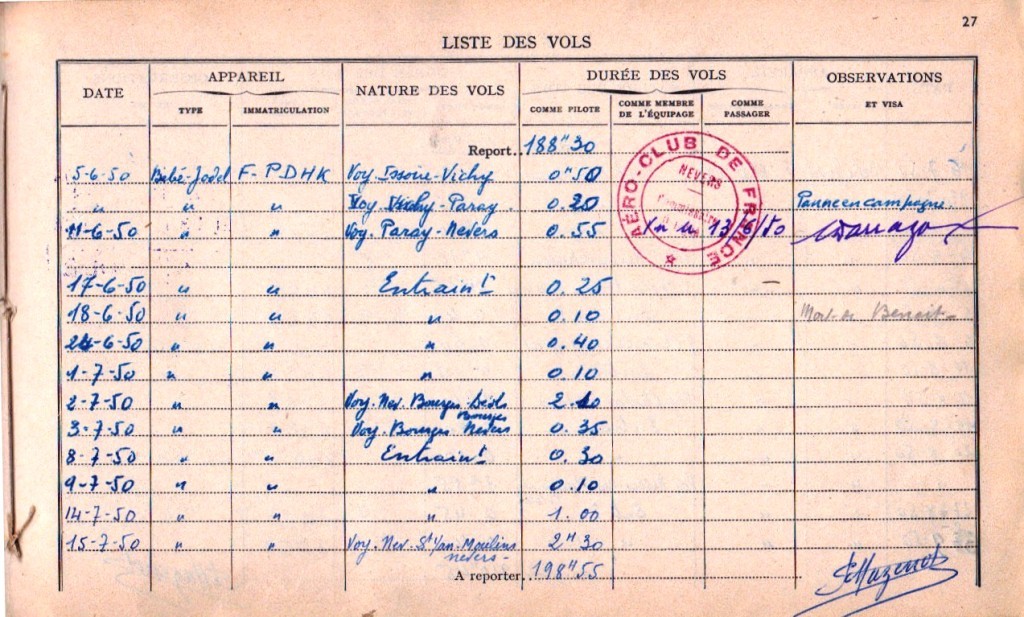 27
LISTE DES VOLS
DATE APPAREIL NATURE DES VOLS DURÉE DES VOLS OBSERVATIONS ET VISA
TYPE IMMATRICULATION COMME PILOTE COMME MEMBRE DE L'ÉQUIPAGE COMME PASSAGER
Report.. 188" 30
5-6-50 Bébé-Jodel F-PDHK Voy. Issoire-Vichy 0"50
" " " Voy. Vichy-Paray. 0.20 Panne en campagne.
11-6-50 " " Voy. Paray-Nevers 0.55 13/6/50
AÉRO-CLUB DE FRANCE
NEVERS
17-6-50 " " Entraint 0.25 —
18-6-50 " " " 0.10 Mort de Benoit-
24-6-50 " " " 0.40
1-7-50 " " " 0.10
2-7-50 " " Voy. Nev. Bourges-Déols Bourges 2.10
3-7-50 " " Voy. Bourges Nevers 0.35
8-7-50 " " Entraint 0.30
9-7-50 " " " 0.10
14-7-50 " " " 1.00
15-7-50 " " Voy. Nev. St Yan-Moulins 2H30
nevers-
A reporter.. 198"55